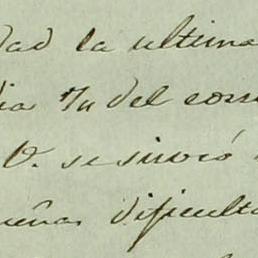 dad la ultima
dia del corr
V. se sirvió
ueñas dificulta